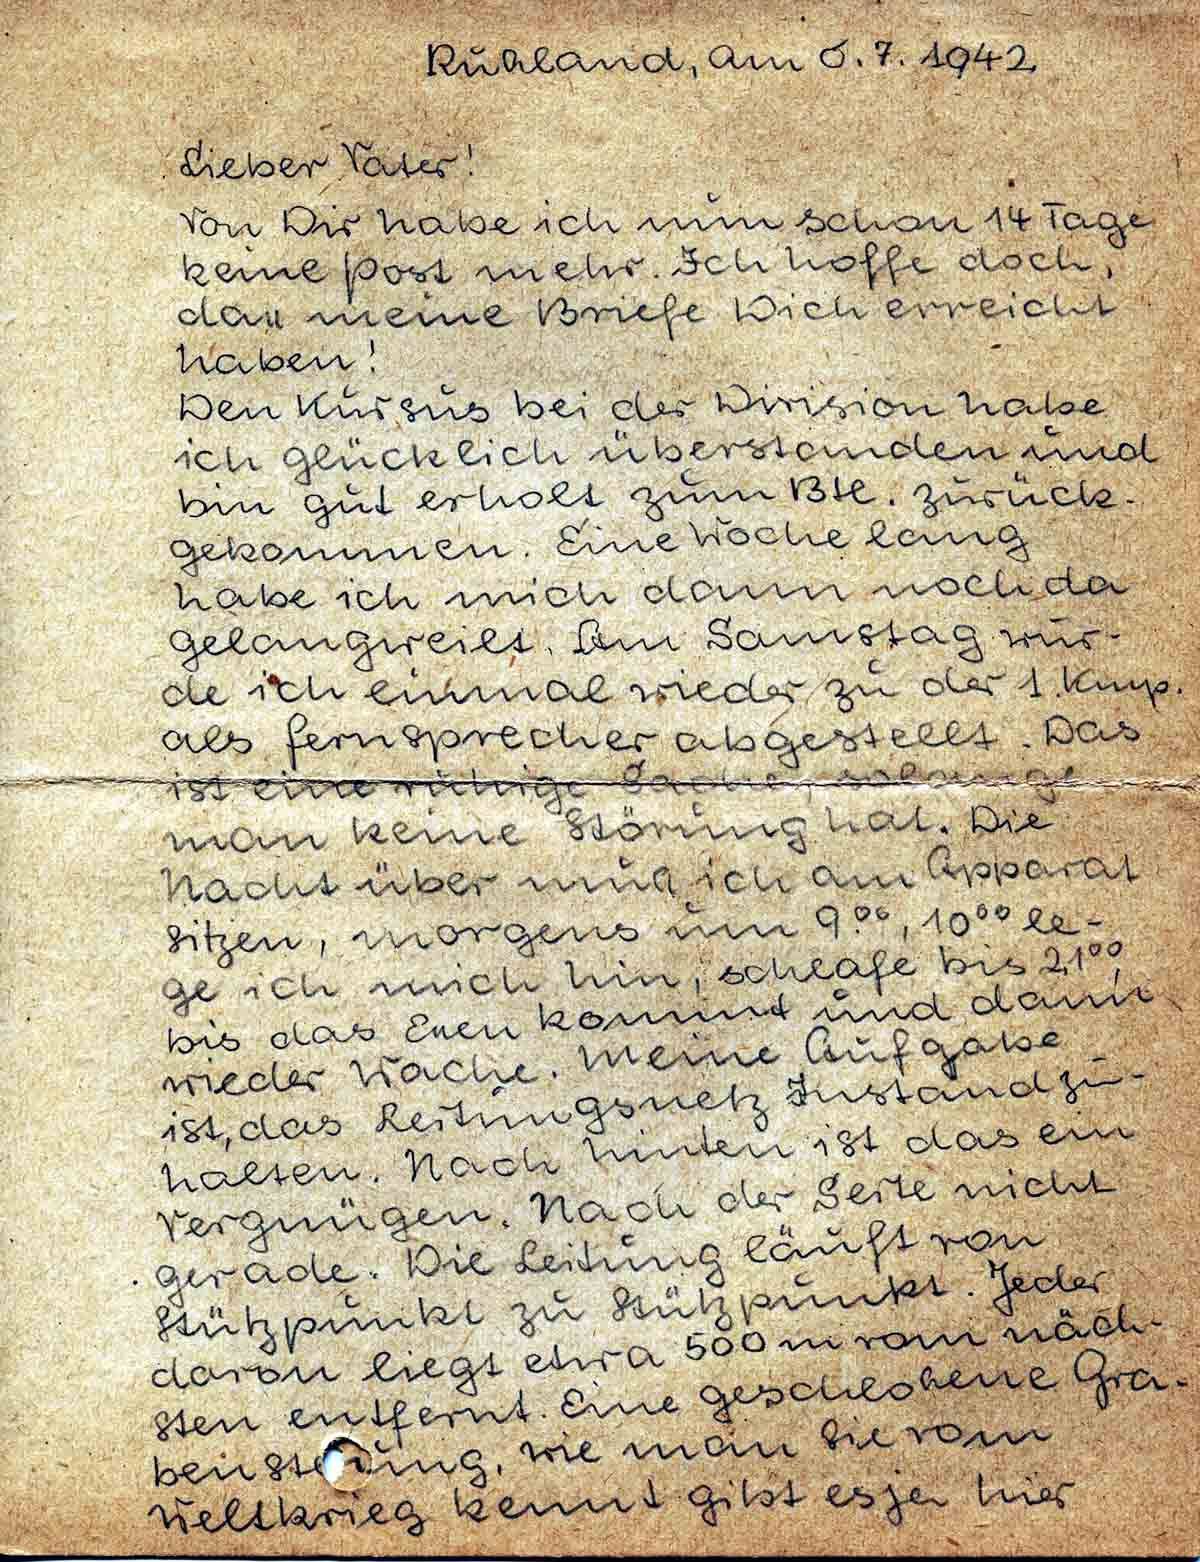 Rußland, am 6.7.1942
Lieber Vater!
Von Dir habe ich nun schon 14 Tage
keine Post mehr. Ich hoffe doch,
daß meine Briefe Dich erreicht
haben!
Den Kursus bei der Division habe
ich glücklich überstanden und
bin gut erholt zum Btl. zurück-
gekommen. Eine Woche lang
habe ich mich dann noch da
gelangweilt. Am Samstag wur-
de ich einmal wieder zu der 1. Kmp.
als Fernsprecher abgestellt. Das
ist eine ruhige Sache, solange
man keine Störung hat. Die
Nacht über muß ich am Apparat
sitzen, morgens um 9.00, 10⁰⁰ le-
ge ich mich hin, schlafe bis 21⁰⁰,
bis das Essen kommt und dann
wieder Wache. Meine Aufgabe
ist, das Leitungsnetz Instandzu-
halten. Nach hinten ist das ein
Vergnügen. Nach der Seite nicht
gerade. Die Leitung läuft von
Stützpunkt zu Stützpunkt. Jeder
davon liegt etwa 500 m vom näch-
sten entfernt. Eine geschloßene Gra-
benstellung, wie man sie vom
Weltkrieg kennt gibt es ja hier